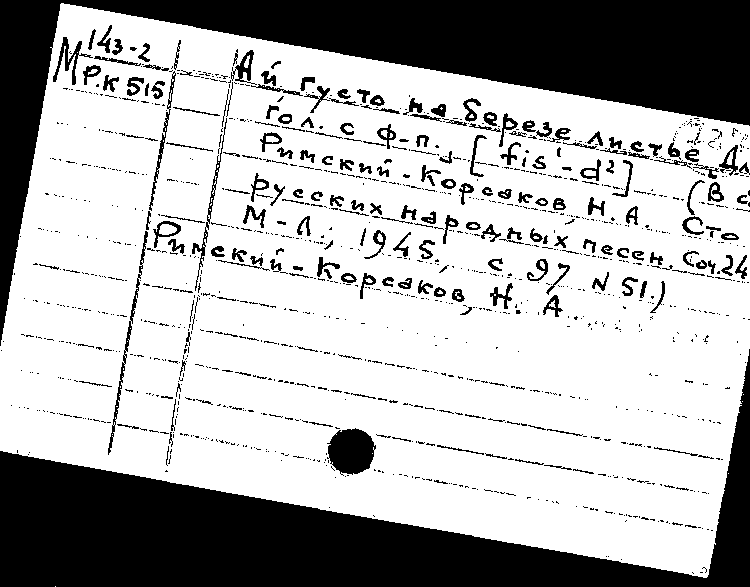 М 143-2
Р.К 515
Ай, густо на березе листье Дл
гол. с ф-п., [fis¹-d²] (В с
Римский-Корсаков, Н.А. Сто
русских народных песен. Соч.24
М-Л., 1945., с. 97 N 51.)
Римский-Корсаков, Н. А.